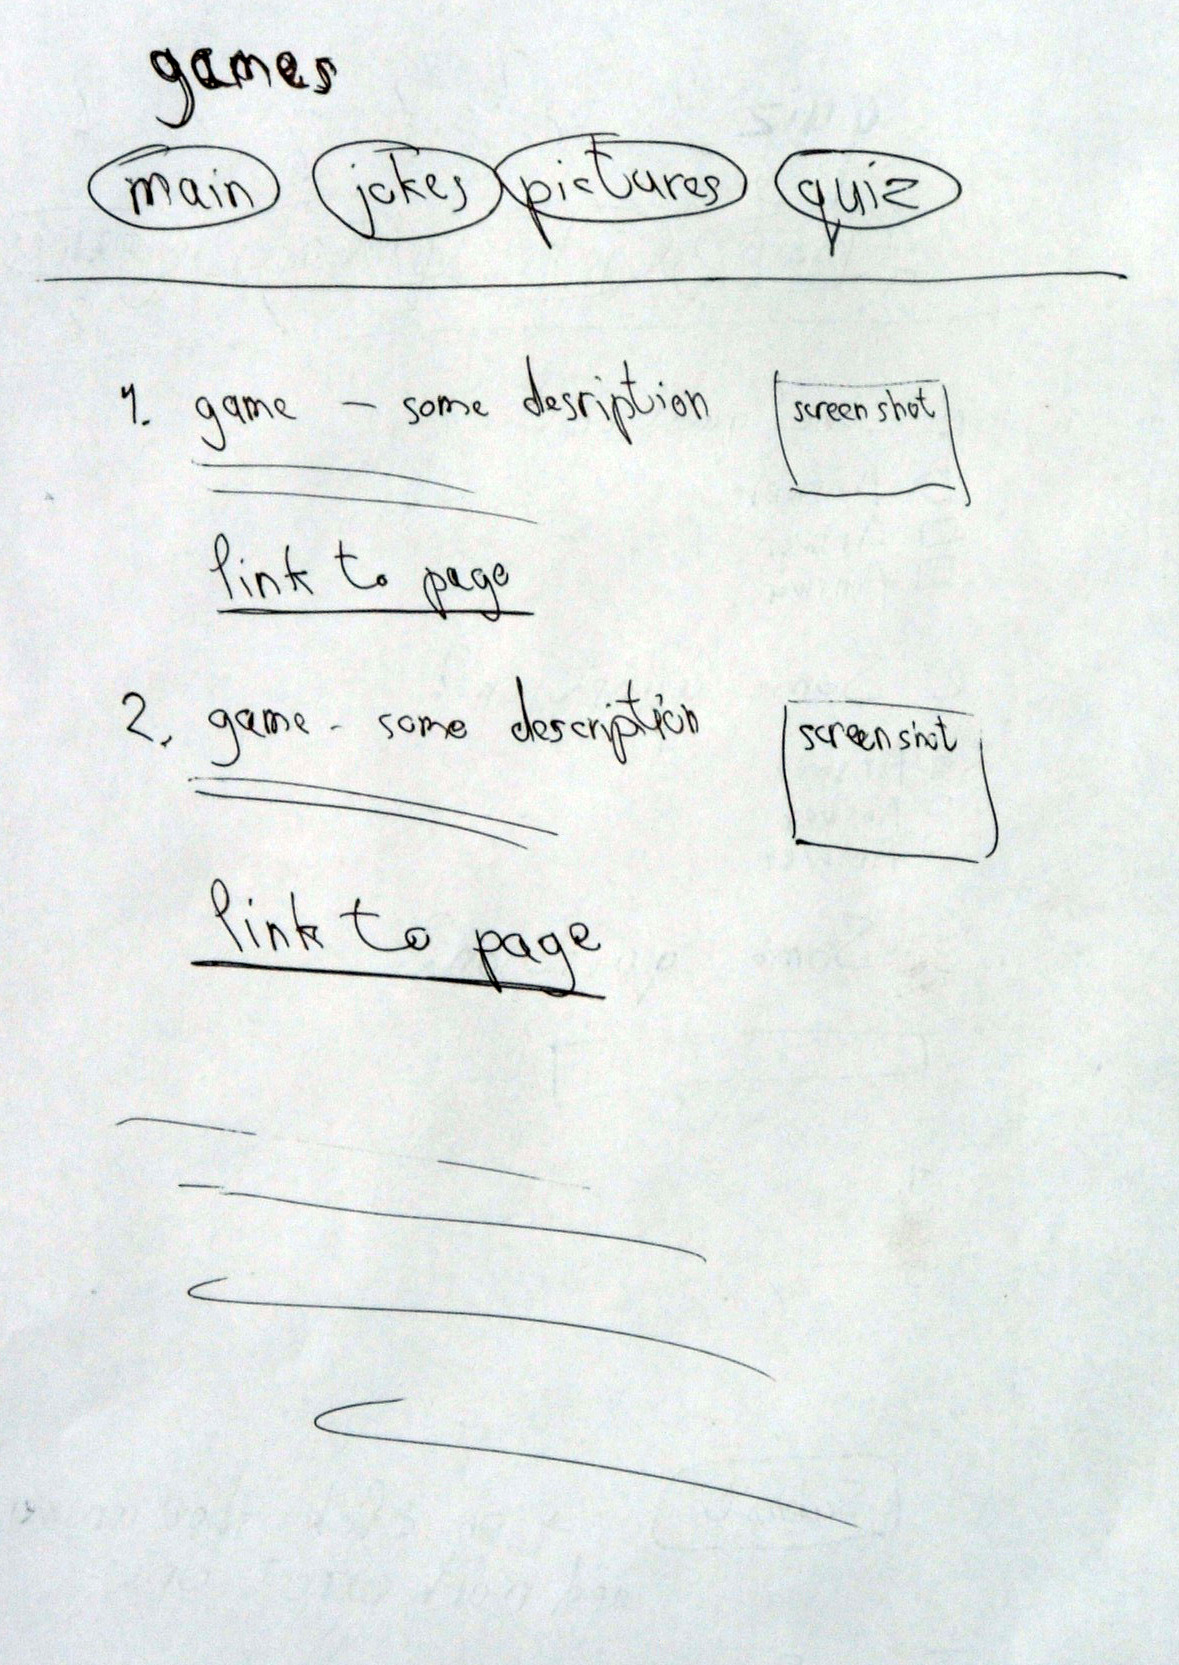 games
main jokes pictures quiz
1. game – some desription
screen shot
link to page
2. game - some description
screen shot
link to page